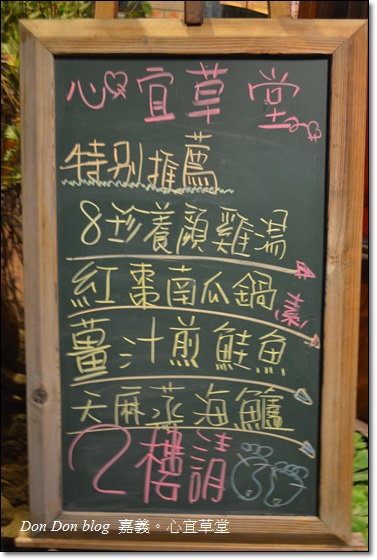 心宜草堂
特別推薦
8珍養顏雞湯
紅棗南瓜鍋(素)
薑汁煎鮭魚
天麻蒸海鱸
2樓請
Don Don blog 嘉義。心宜草堂